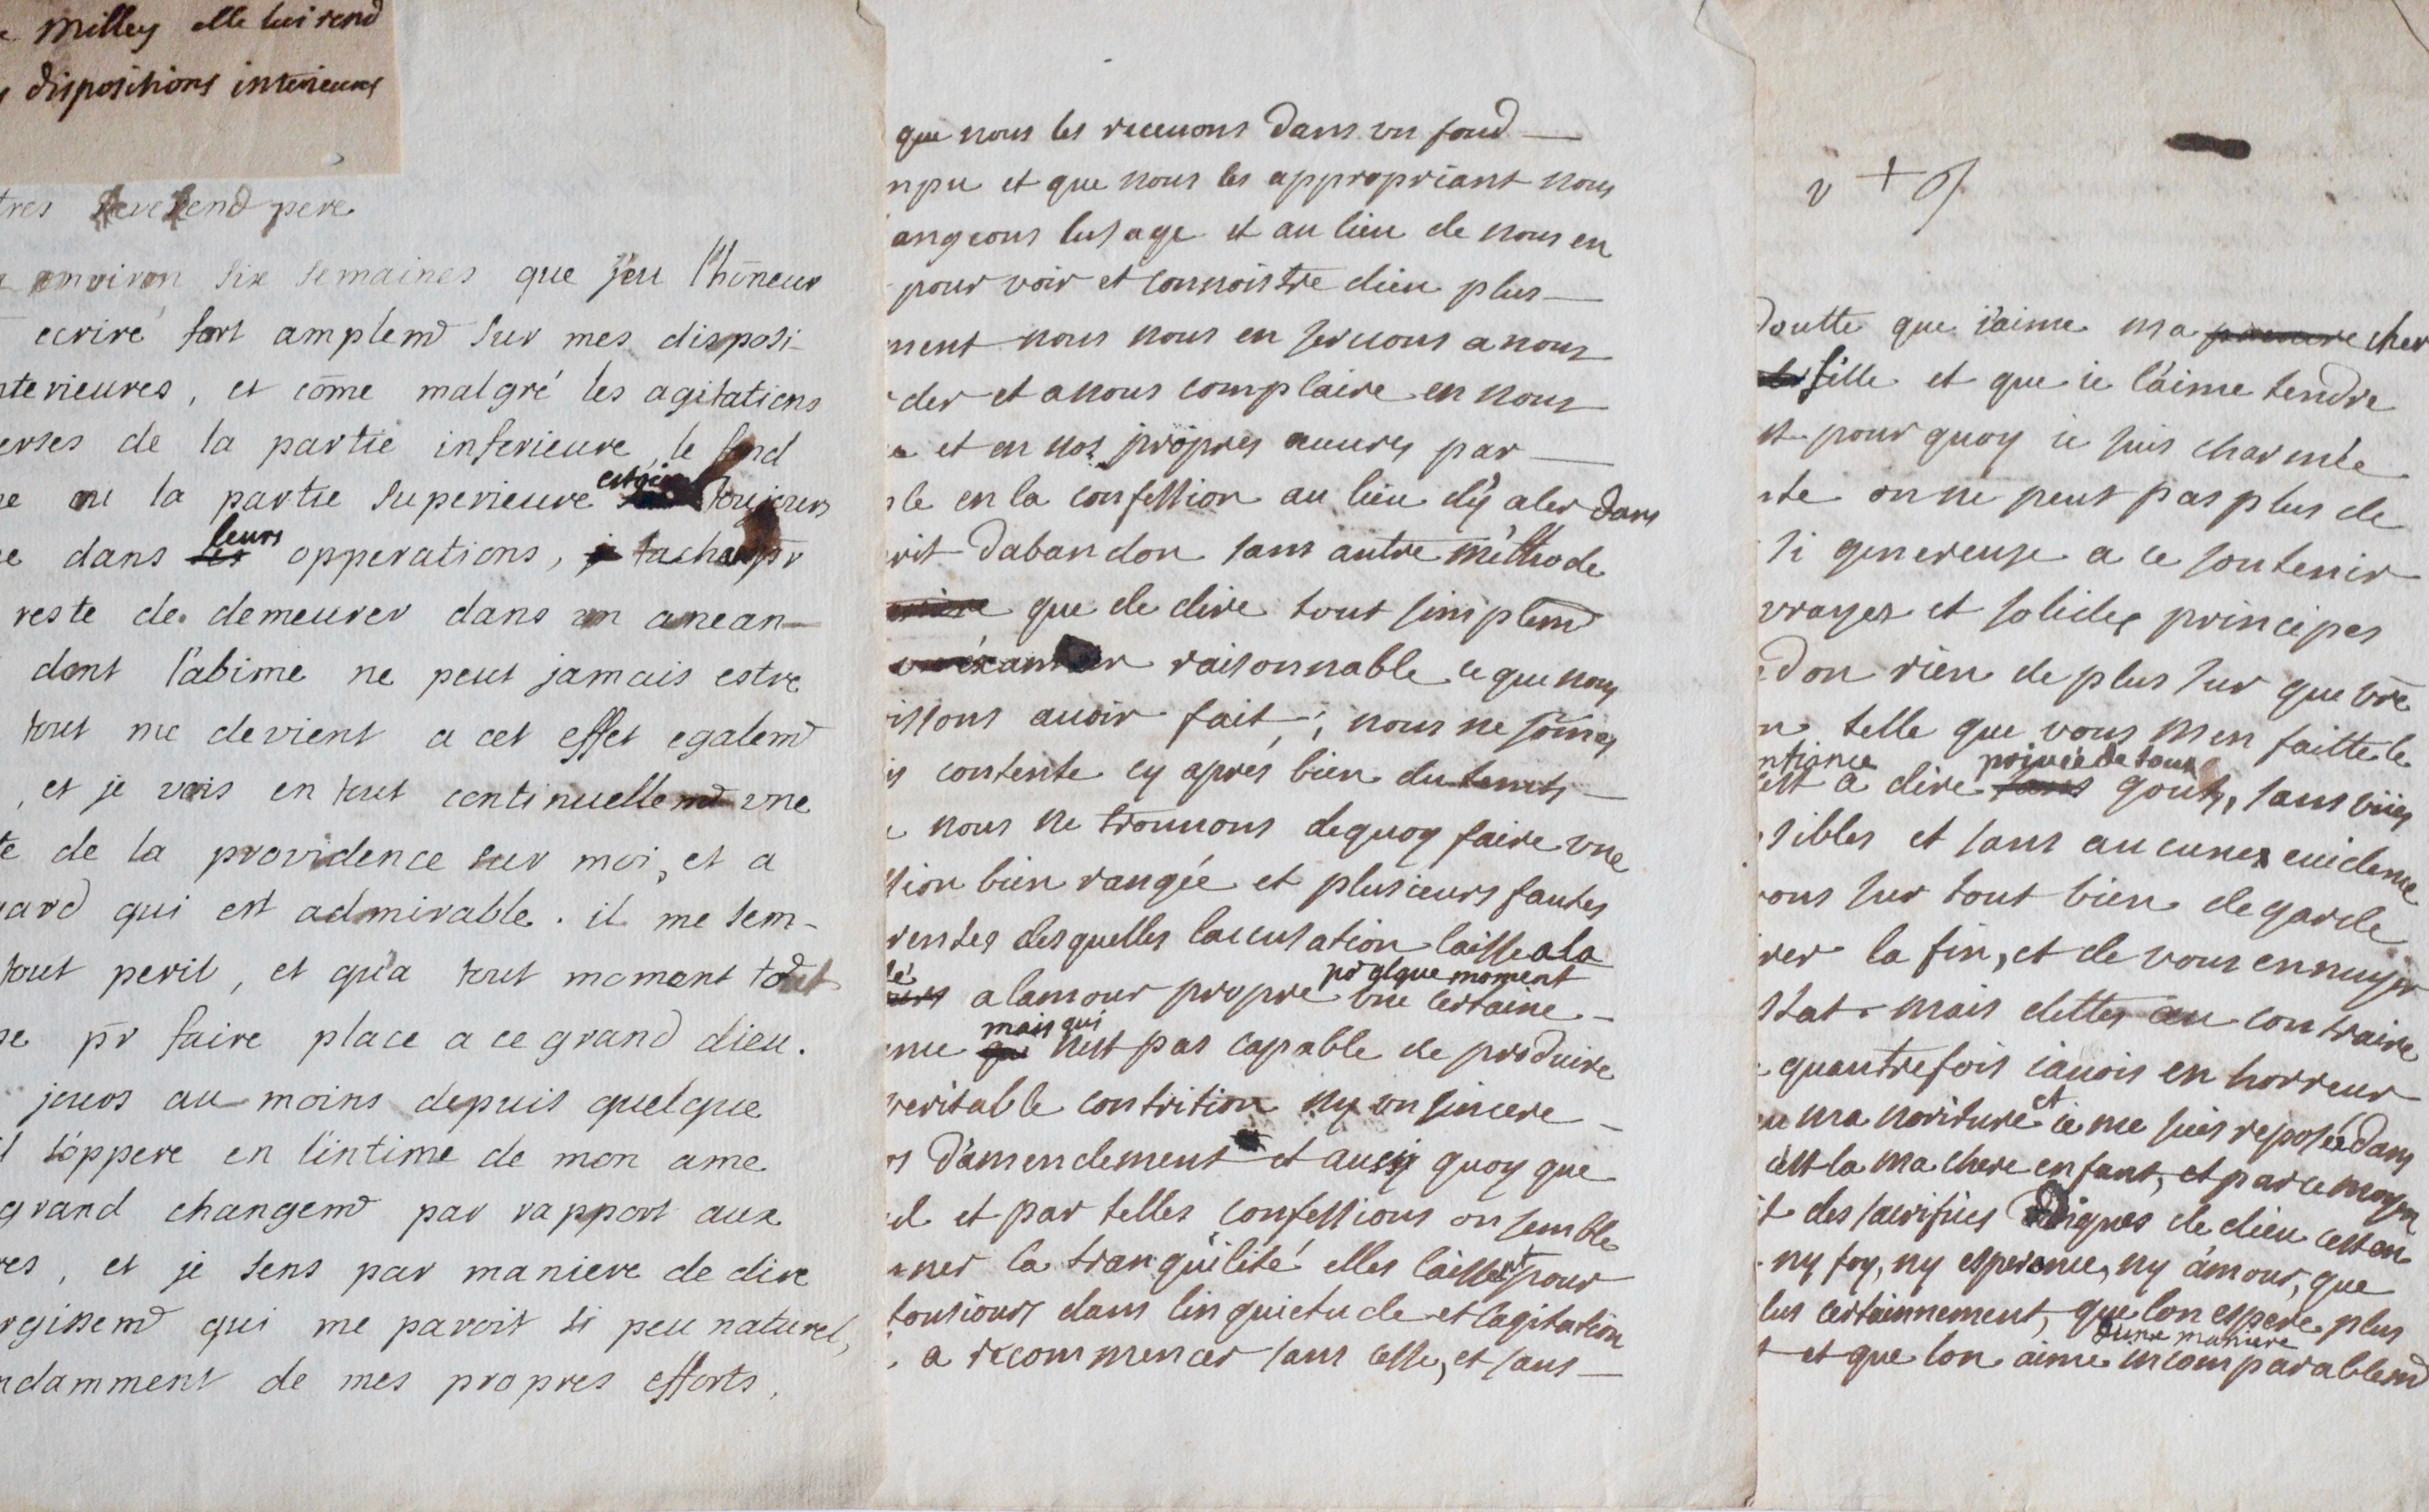 Milley elle lui rend
dispositions interieures
tres Reverend pere
environ six semaines que j'eu l'hōneur
ecrire fort amplemt sur mes disposi-
nterieures, et cōme malgré les agitations
erses de la partie inferieure, le fond
ou la partie superieure estoient toujours
dans les leurs opperations, je tachai pr
reste de demeurer dans un anean-
dont l'abime ne peut jamais estre
tout me devient a cet effet egalemt
, et je vois en tout continuellemt vne
te de la providence sur moi, et a
gard qui est admirable. il me sem-
tout perit, et qu'a tout moment tout
se pr faire place a ce grand dieu.
jours au moins depuis quelque
s'oppere en l'intime de mon ame
grand changemt par rapport aux
res, et je sens par maniere de dire
rgissemt qui me paroit si peu naturel,
ndamment de mes propres efforts,
que nous les receuons dans vn fond
npu et que nous les appropriant nous
angeons lusage et au lieu de nous en
pour voir et connoistre dieu plus
ment nous nous en seruons a nous
der et a nous complaire en nous
et en nos propres œuures par
ple en la confession au lieu d'y aler dans
rit dabandon sans autre methode
que de dire tout simplemt
examiner raisonnable ce que nous
issons auoir fait; nous ne sōmes
contente cy aprés bien du temts
nous ne trouuons dequoy faire vne
ssion bien rangée et plusieurs fautes
rentes desquelles laccusation laisse a la
a lamour propre pr qlque moment vne certaine
mais qui nest pas capable de produire
veritable contrition ny vn sincere
d'amendement et aussy quoy que
et par telles confessions on semble
ner la tranquilité elles laissent pour
tousiours dans linquietude et lagitation
a recommencer sans cesse, et sans
v + g
doutte que j'aime ma pauure cher
fille et que ie l'aime tendre
st pourquoy ie suis charmée
nte on ne peut pas plus de
si genereuse a ce soutenir
vrayes et solides principes
don rien de plus sur que vr̄e
n telle que vous m'en faitte le
est a dire sans priuée de tous gouts, sans vües
sibles et sans aucunes euidence
vous sur tout bien de garde
rer la fin, et de vous ennuyer
stat. mais dittes au contraire
quautrefois iauois en horreur
ma noriture et ie me suis reposée dans
c'est la ma chere enfant, et par ce moyen
des sacrifices dignes de dieu cest en
ny foy, ny esperence, ny amour, que
lus certainnement, que lon espere plus
et que lon aime d'une maniere incomparablemt